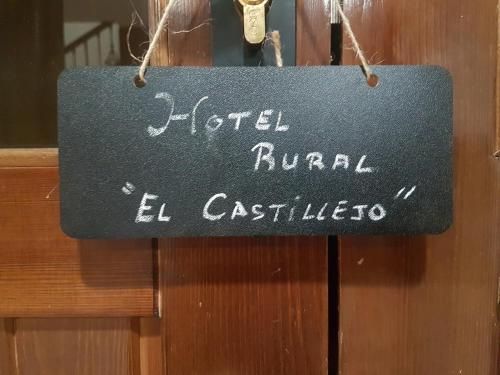 HOTEL
RURAL
"EL CASTILLEJO"